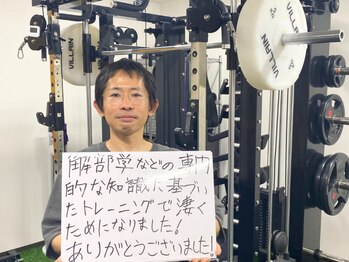 VILLAIN
VILLAIN
VILLAIN
解部学などの専門
的な知識に基づい
たトレーニングで凄く
ためになりました！
ありがとうございました！